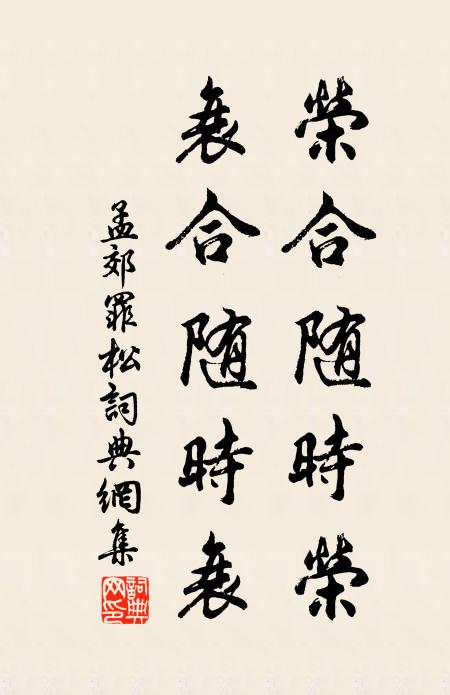 榮合随時榮
衰合随時衰
孟郊罪松詞典網集
詞典
网印